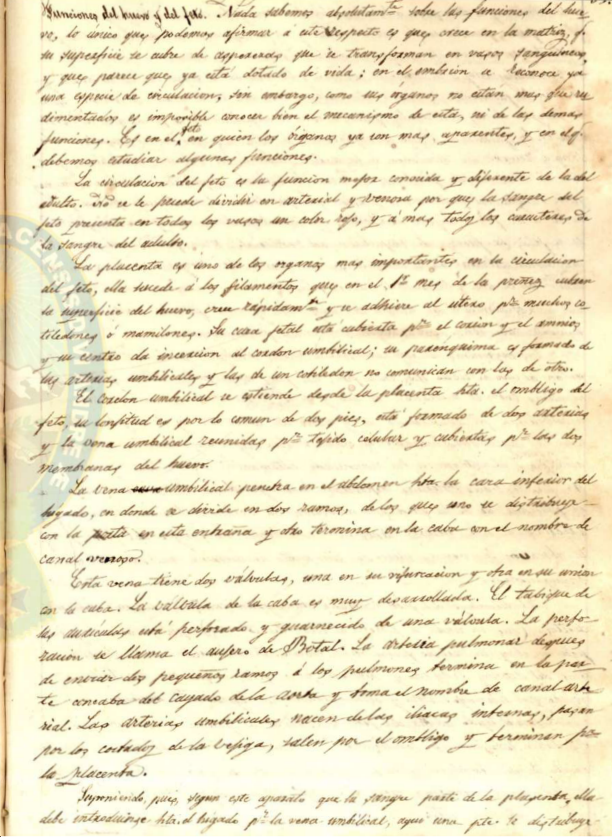 Funciones del huevo y del feto. Nada sabemos absolutamte sobre las funciones del hue-
vo, lo unico que podemos afirmar a este respecto es que crece en la matriz, q.
su superficie se cubre de asperezas que se transforman en vasos sanguineos,
y que parece que ya está dotado de vida; en el embrion a reconoce ya
una especie de circulacion, sin embargo, como sus organos no estan mas que ru
dimentados es imposible conocer bien el mecanismo de esta, ni de las demas
funciones. Es en el feto en quien los órganos ya son mas aparentes, y en el q.
debemos estudiar algunas funciones.
La circulacion del feto es la funcion mejor conocida y diferente de la del
adulto. No se le puede dividir en arterial y venosa por que la sangre del
feto presenta en todos los vasos un color rojo, y á mas todos los caracteres de
la sangre del adulto.
La placenta es uno de los organos mas importantes en la circulacion
del feto, ella sucede á los filamentos que en el 1er mes de la preñez cubren
la superficie del huevo, crece rápidamte y se adhiere al utero pr muchos co-
tiledones ó mamilones. Su cara fetal está cubierta pr el corion y el amnios
y su centro da incercion al cordon umbilical; su parenquima es formado de
las arterias umbilicales y las de un cotiledon no comunican con las de otro.
El cordon umbilical se estiende desde la placenta hta. el ombligo del
feto, su lonjitud es por lo comun de dos pies, está formado de dos arterias
y la vena umbilical reunidas pr tejido celular y cubiertas pr las dos
membranas del huevo.
La vena umbilical penetra en el abdomen hta. la cara inferior del
higado, en donde se divide en dos ramos, de los que uno se distribuye
con la porta en esta entraña y otro termina en la caba con el nombre de
canal venoso.
Esta vena tiene dos válvulas, una en su vifurcacion y otra en su union
con la caba. La válvula de la caba es muy desarrollada. El tabique de
las auriculas está perforado y guarnecido de una válvula. La perfo-
racion se llama el aujero de Botal. La arteria pulmonar despues
de enviar dos pequeños ramos á los pulmones termina en la par
te concaba del cayado de la aorta y toma el nombre de canal arte
rial. Las arterias umbilicales nacen de las iliacas internas, pasan
por los costados de la vejiga, salen por el ombligo y terminan pa
la placenta.
Suponiendo, pues, segun este aparato que la sangre parte de la placenta, ella
debe introducirse hta. el higado pr la vena umbilical, aqui una pte. se distribuye